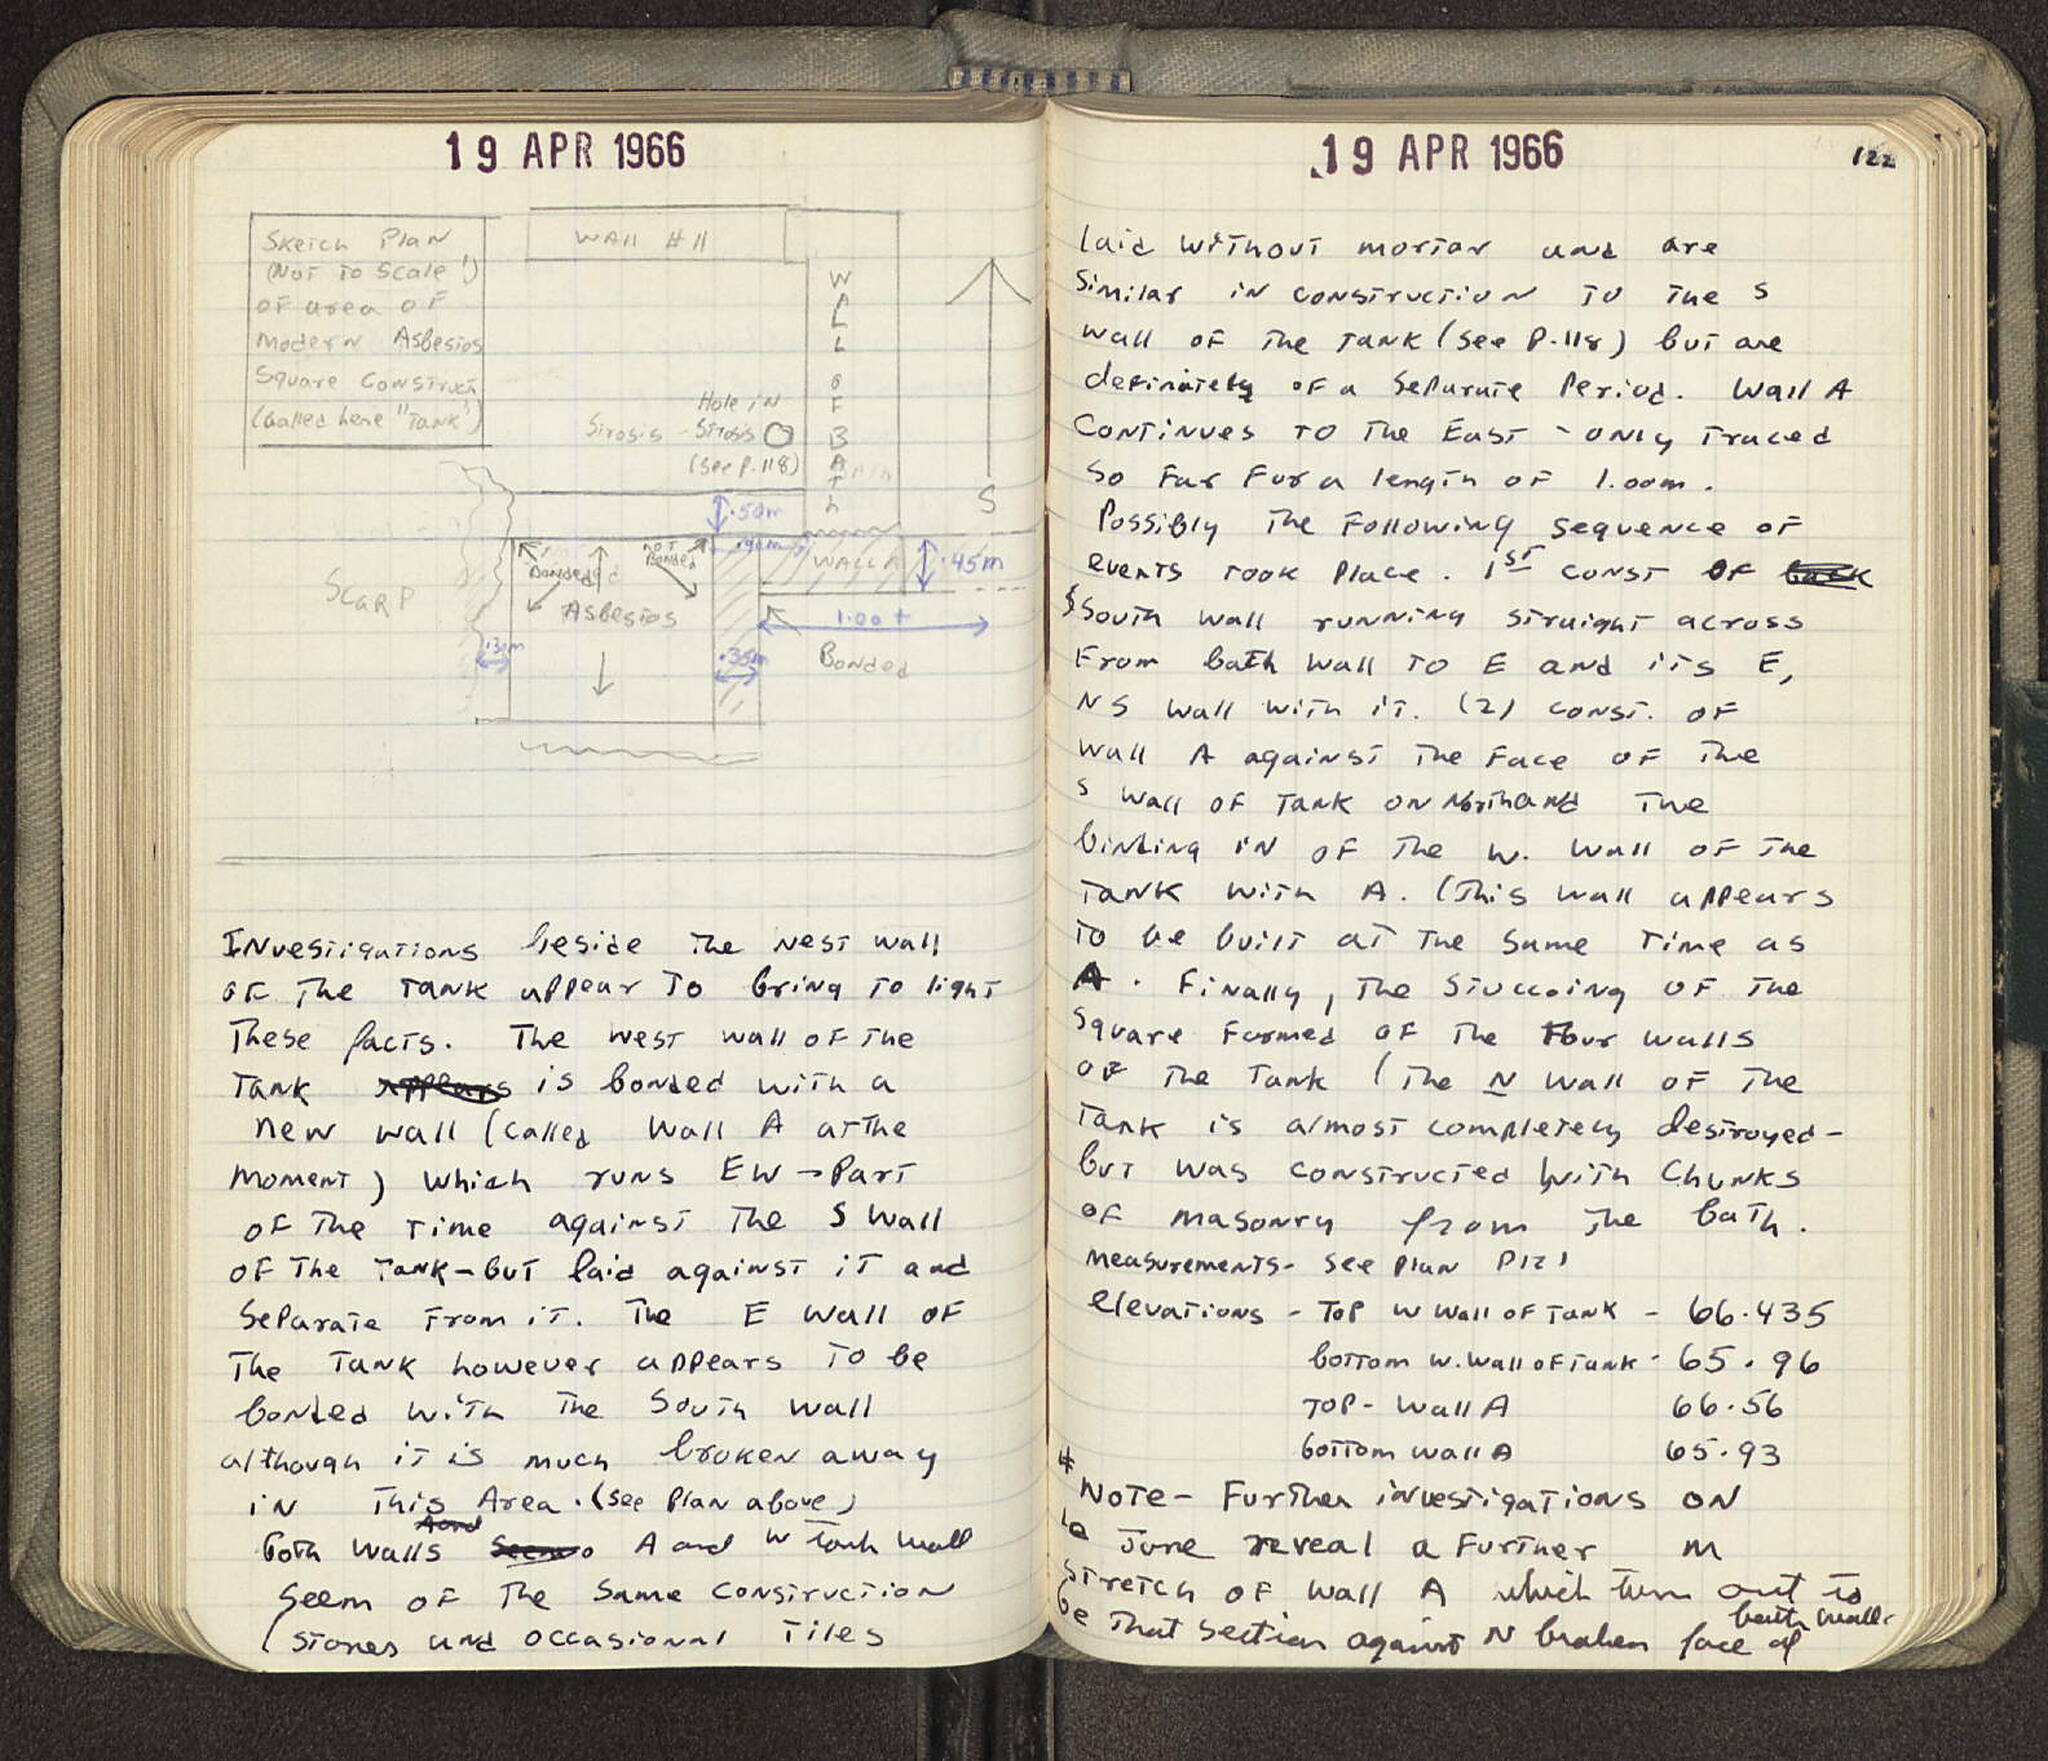 19 APR 1966
Sketch Plan
(Not to Scale!)
of area of
Modern Asbestos
Square Construct.
(Called here "Tank")
WAll #11
WALL OF BATh
Hole in
Strosis - Strosis
(see P.118)
S
.50m
.90m
WALL A
.45m
Bonded
NOT
Bonded
Scarp
Asbestos
1.00+
.30m
.35m
Bonded
Investigations beside the West wall
of the tank appear to bring to light
These facts. The west wall of the
Tank appears is bonded with a
new wall (called Wall A at the
moment) which runs EW - Part
of the time against the S Wall
of the Tank - but laid against it and
Separate from it. The E Wall of
the Tank however appears to be
bonded with the South wall
although it is much broken away
in this Area. (see Plan above)
both walls A and W tank wall
seem of the same construction
(stones and occasional tiles
19 APR 1966
122
laid without mortar and are
Similar in construction to the S
wall of the tank (see P.118) but are
definitely of a separate period. Wall A
Continues to the East - only traced
so far for a length of 1.00m.
Possibly the following sequence of
events took place. 1st const of back
South wall running straight across
From bath wall to E and its E,
NS wall with it. (2) const. of
wall A against the face of the
S wall of tank on North and the
binding in of the W. wall of the
tank with A. (This wall appears
to be built at the same time as
A. Finally, the stuccoing of the
square formed of the four walls
of the tank (the N wall of the
tank is almost completely destroyed -
but was constructed with chunks
of masonry from the bath.
measurements - see plan P121
elevations - Top W wall of Tank - 66.435
bottom W. wall of Tank - 65.96
Top - Wall A 66.56
bottom wall A 65.93
# Note - Further investigations on
June reveal a further m
stretch of wall A which turn out to
be that section against N broken face of
bath wall.